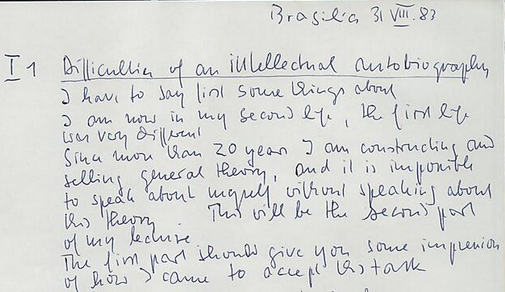 Brasilia 31 VIII. 83
I 1 Difficulties of an intellectual autobiography
I have to say first some things about
I am now in my second life, the first life
was very different
Since more than 20 years I am constructing and
selling general theory, and it is impossible
to speak about myself without speaking about
this theory This will be the second part
of my lecture
The first part should give you some impression
of how I came to accept this task